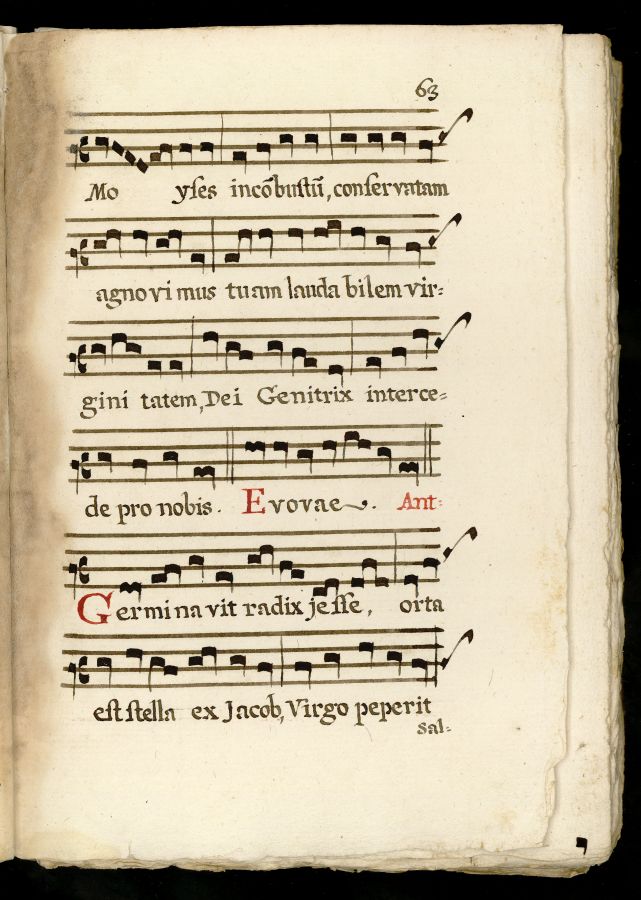 63
Mo yses incõbustũ, conservatam
agnovi mus tuam lauda bilem vir=
gini tatem, Dei Genitrix interce=
de pro nobis. Evovae. Ant=
Germinavit radix jesse, orta
est stella ex Jacob, Virgo peperit
Sal=